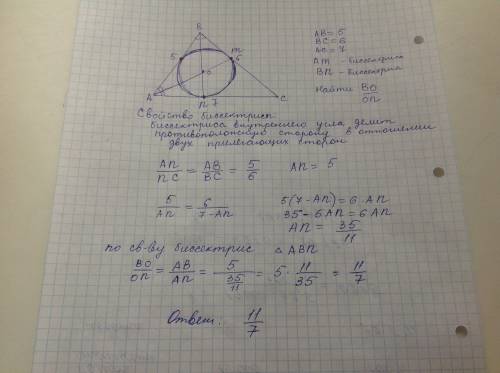 B
AB = 5
BC = 6
AC = 7
AM - биссектриса
BN - биссектриса
Найти BO/ON
5
m
6
o
A
n
7
C
Свойство биссектрисы.
биссектриса внутреннего угла делит
противоположную сторону в отношении
двух прилегающих сторон
An/nC = AB/BC = 5/6
An = 5
5/An = 6/(7-An)
5(7-An) = 6·An
35-6An = 6An
An = 35/11
по св-ву биссектрис △ ABn
BO/On = AB/An = 5/(35/11) = 5·11/35 = 11/7
Ответ: 11/7